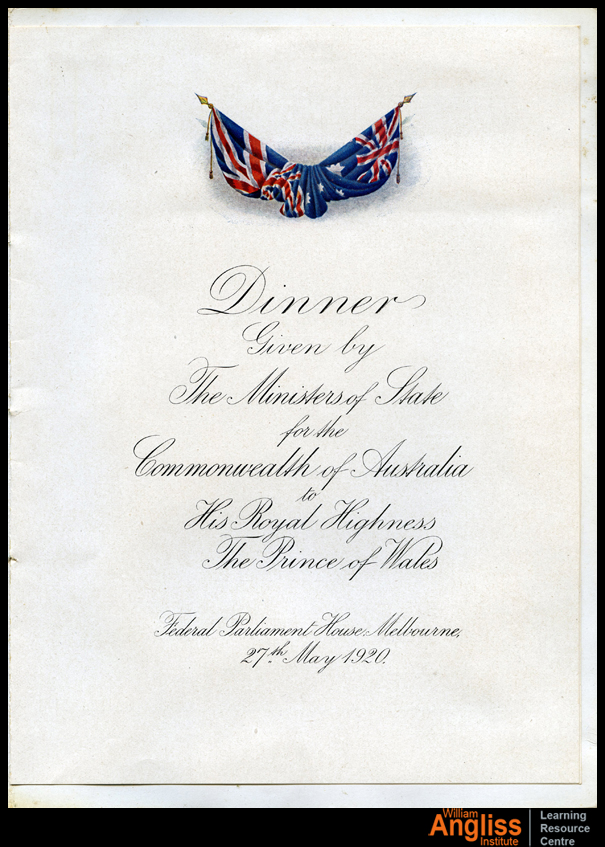 Dinner
Given by
The Ministers of State
for the
Commonwealth of Australia
to
His Royal Highness
The Prince of Wales
Federal Parliament House, Melbourne.
27th May 1920.
William
Angliss
Institute
Learning
Resource
Centre